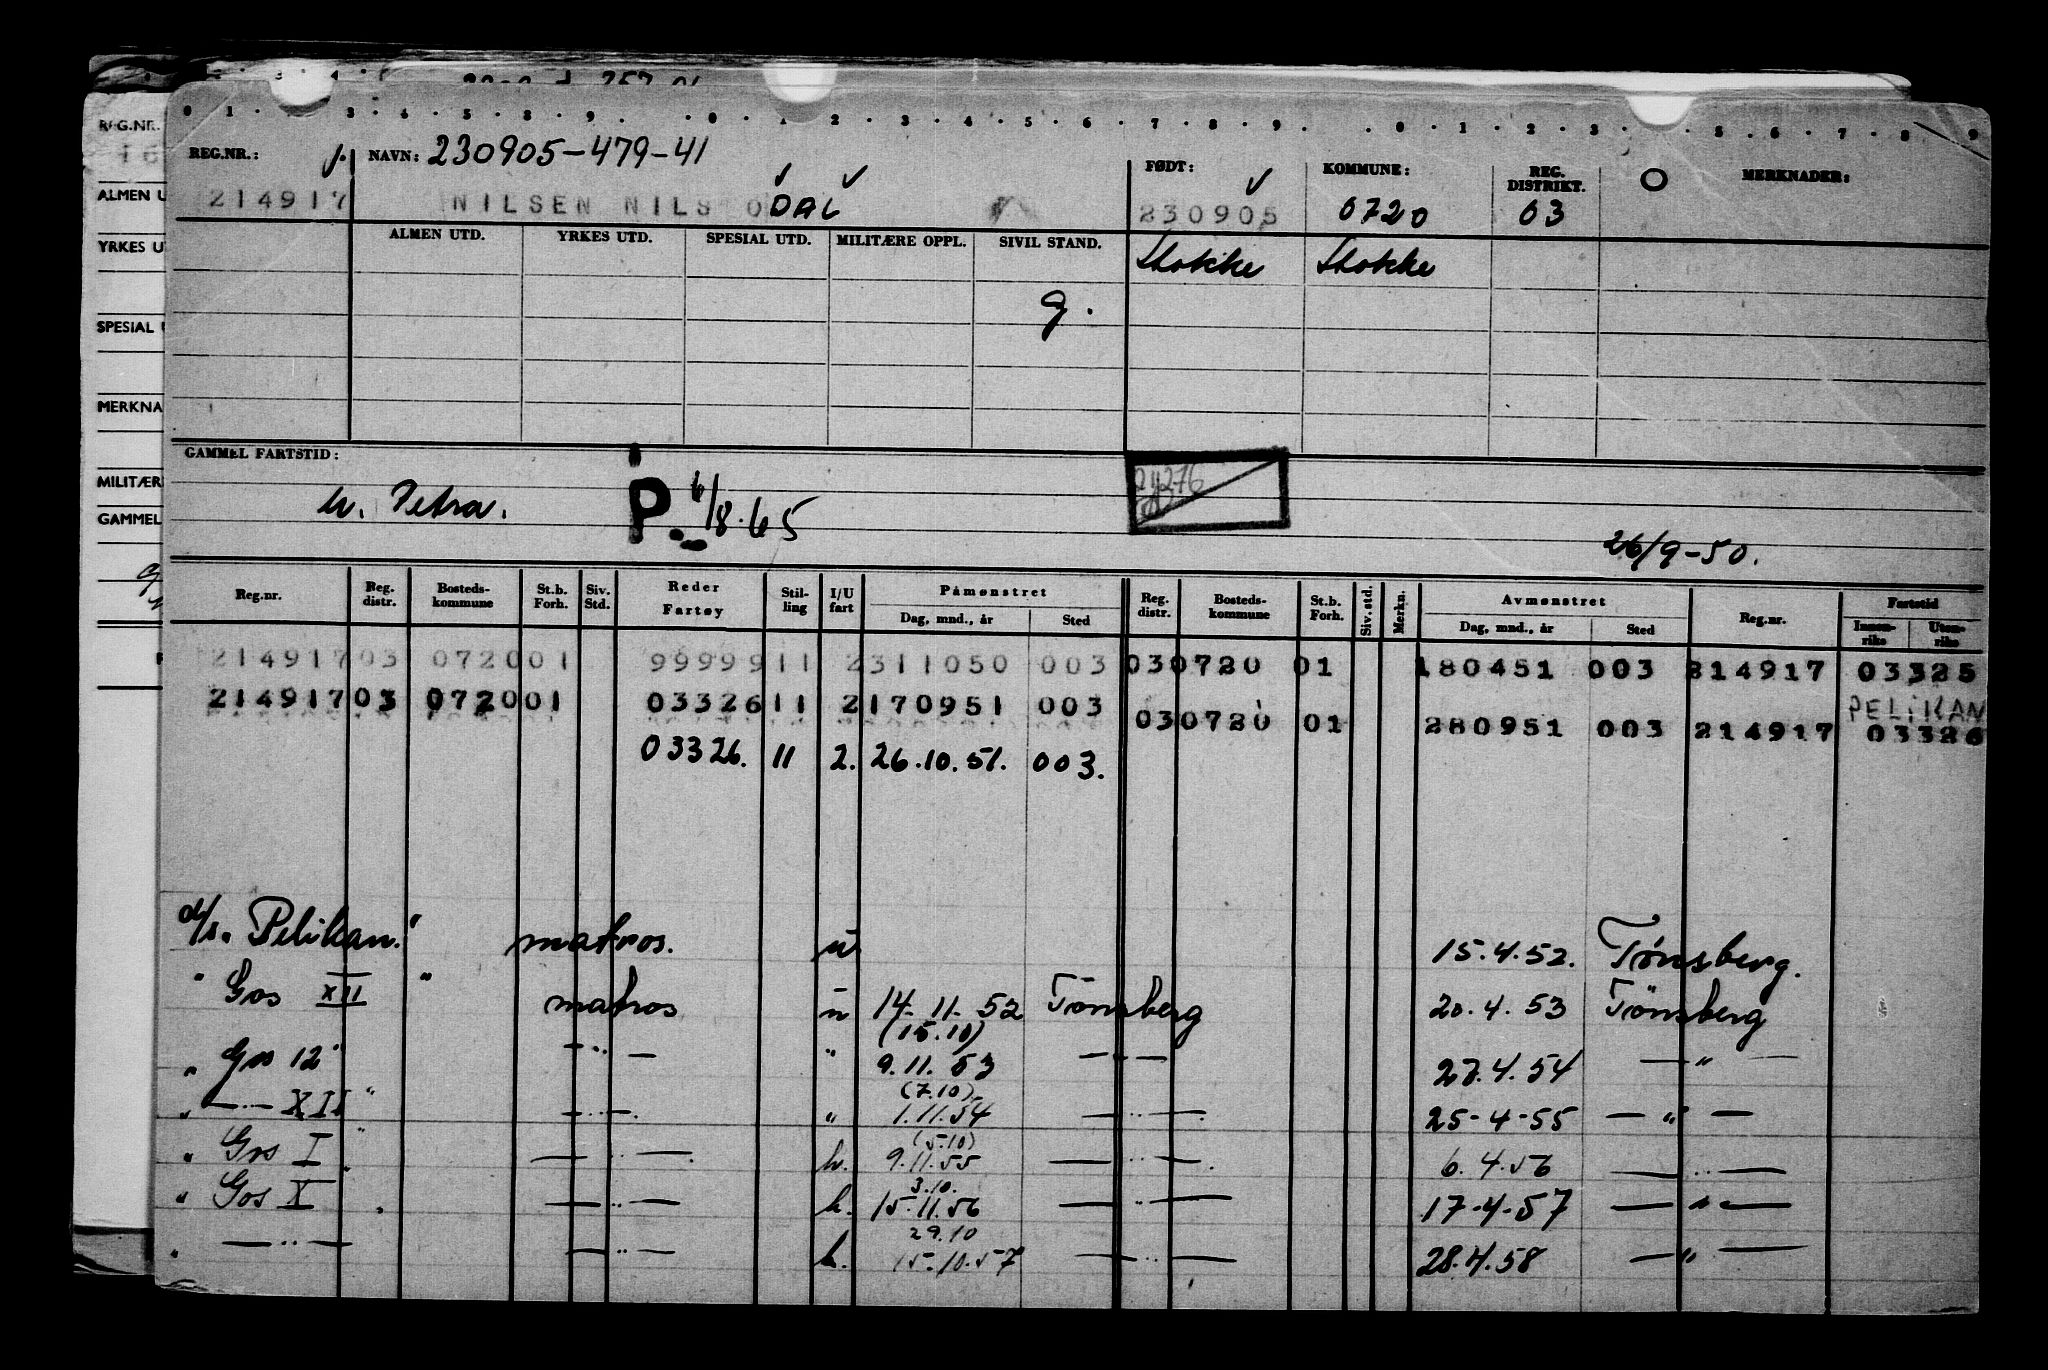 0 1 3 4 5 8 9 0 1 2 3 4 5 6 7 8 9 0 1 2 3 5 6 7 8 9
REG.NR.: NAVN: 230905-479-41 FØDT: KOMMUNE: REG. DISTRIKT. MERKNADER:
214917 NILSEN NILS ODAL 230905 0720 03
ALMEN UTD. YRKES UTD. SPESIAL UTD. MILITÆRE OPPL. SIVIL STAND. Stokke Stokke
g.
GAMMEL FARTSTID:
u. Petra. P. 6/8.65 211276
26/9-50.
Reg.nr. Reg. distr. Bosteds-kommune St.b. Forh. Siv. Std. Reder Fartøy Stil-ling I/U fart Påmønstret Dag, mnd., år Sted Reg. distr. Bosteds-kommune St.b. Forh. Siv. std. Merkn. Avmønstret Dag, mnd., år Sted Reg.nr. Fartstid Innen-riks Uten-riks
214917 03 0720 01 99999 11 2 311050 003 03 0720 01 180451 003 214917 03325
214917 03 0720 01 03326 11 2 170951 003 03 0720 01 280951 003 214917 PELIKAN 03326
03326. 11 2. 26.10.51. 003.
d/s. Pelikan." matros. u 15.4.52. Tønsberg.
" Gos XII " matros u 14.11.52 Tønsberg 20.4.53 Tønsberg
(15.10)
" Gos 12" —"— " 9.11.53 —"— 27.4.54 —"—
(7.10)
" —"— XII" —"—. " 1.11.54 —"—. 25-4-55 —"—
(5.10)
" Gos I" —"—. h. 9.11.55 —"—. 6.4.56 —"—
3.10.
" Gos X" —"— h. 15.11.56 —"— 17.4.57 —"—
29.10
" —"— —"— h. 15.10.57 —"— 28.4.58 —"—
REG.NR.
ALMEN U
YRKES U
SPESIAL U
MERKNA
MILITÆR
GAMMEL